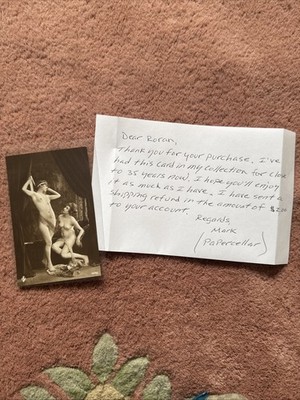 Dear Roran,
Thank you for your purchase. I've
had this card in my collection for close
to 35 years now. I hope you'll enjoy
it as much as I have. I have sent a
shipping refund in the amount of
to your account.
Regards
Mark
(Papercellar)